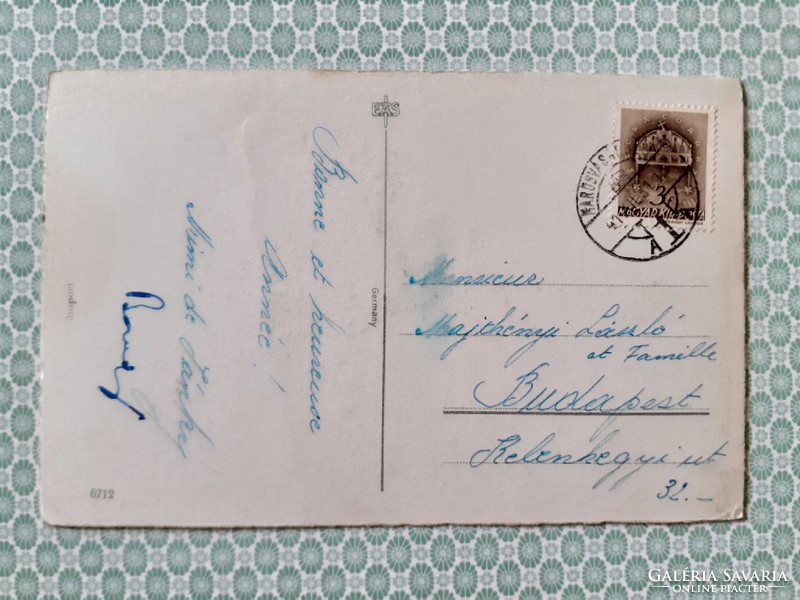 EAS
Bonne et heureuse
Année !
Mimi de
Germany
6712
MAROSVÁS
3
MAGYAR KIR. POSTA
Monsieur
Majthényi László
et Famille
Budapest
Kelenhegyi ut
32.–
GALÉRIA SAVARIA
ONLINE PIACTÉR